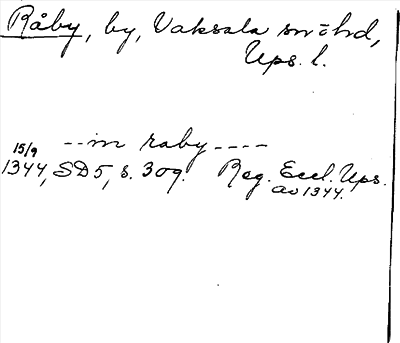 Råby, by, Vaksala sn o hd,
Ups. l.
--in raby----
15/9
1344, SD5, s. 309. Reg. Eccl. Ups.
av 1344.